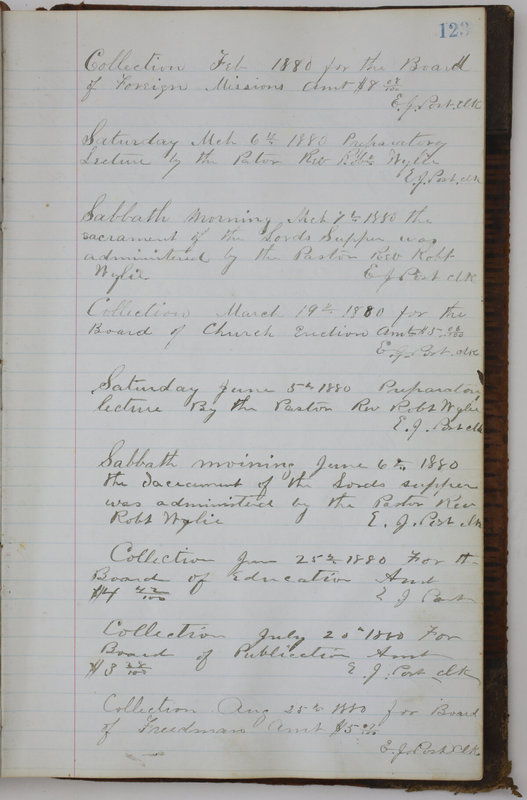 123
Collection Feb 1880 for the Board
of Foreign Missions Amt $8
E. J. Post. clk
Saturday Mch 6th 1880 Preparatory
Lecture by the Pator Rev Robt Wylie
E. J. Post. clk
Sabbath morning Mch 7th 1880 the
sacrament of the Lords Supper was
administered by the Pastor Rev Robt
Wylie E J Post clk
Collection March 19th 1880 for the
Board of Church Erection Amt $5
E. J. Post. clk
Saturday June 5th 1880 Preparatory
lecture By the Pastor Rev Robt Wylie
E. J. Post clk
Sabbath morning June 6th 1880
the Sacrement of the Lords supper
was administered by the Pastor Rev
Robt Wylie E. J. Post clk
Collection Jun 25th 1880 For th
Board of Education Amt
$4 E J Post
Collection July 20th 1880 For
Board of Publication Amt
$3 E. J. Post clk
Collection Aug 25th 1880 for Board
of Freedmans Amt $5
E. J. Post Clk.